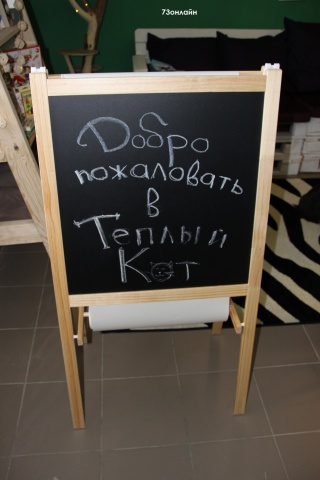 73онлайн
Добро
пожаловать
в
Теплый
Кот